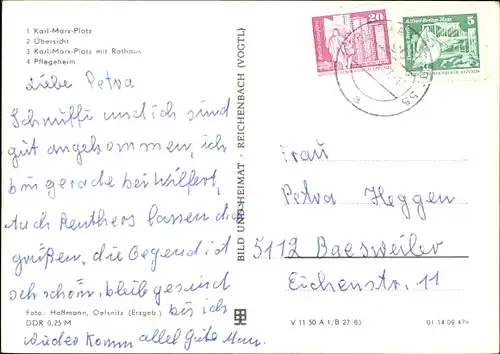 1 Karl-Marx-Platz
2 Übersicht
3 Karl-Marx-Platz mit Rathaus
4 Pflegeheim
Liebe Petra
Schnuffi und ich sind
gut angekommen, ich
bin gerade bei Wilfert,
Auch Renthers lassen dich
grüßen, die Gegend ist
seh schön, bleib gesund
bis ich
wieder komm allel Gute Man.
Foto: Hoffmann, Oelsnitz (Erzgeb.)
DDR 0,25 M
BILD UND HEIMAT · REICHENBACH (VOGTL)
20
5
Frau
Petra Heggen
5112 Baesweiler
Eichenstr. 11
V 11 50 A 1/B 27-83
01 14 09 479